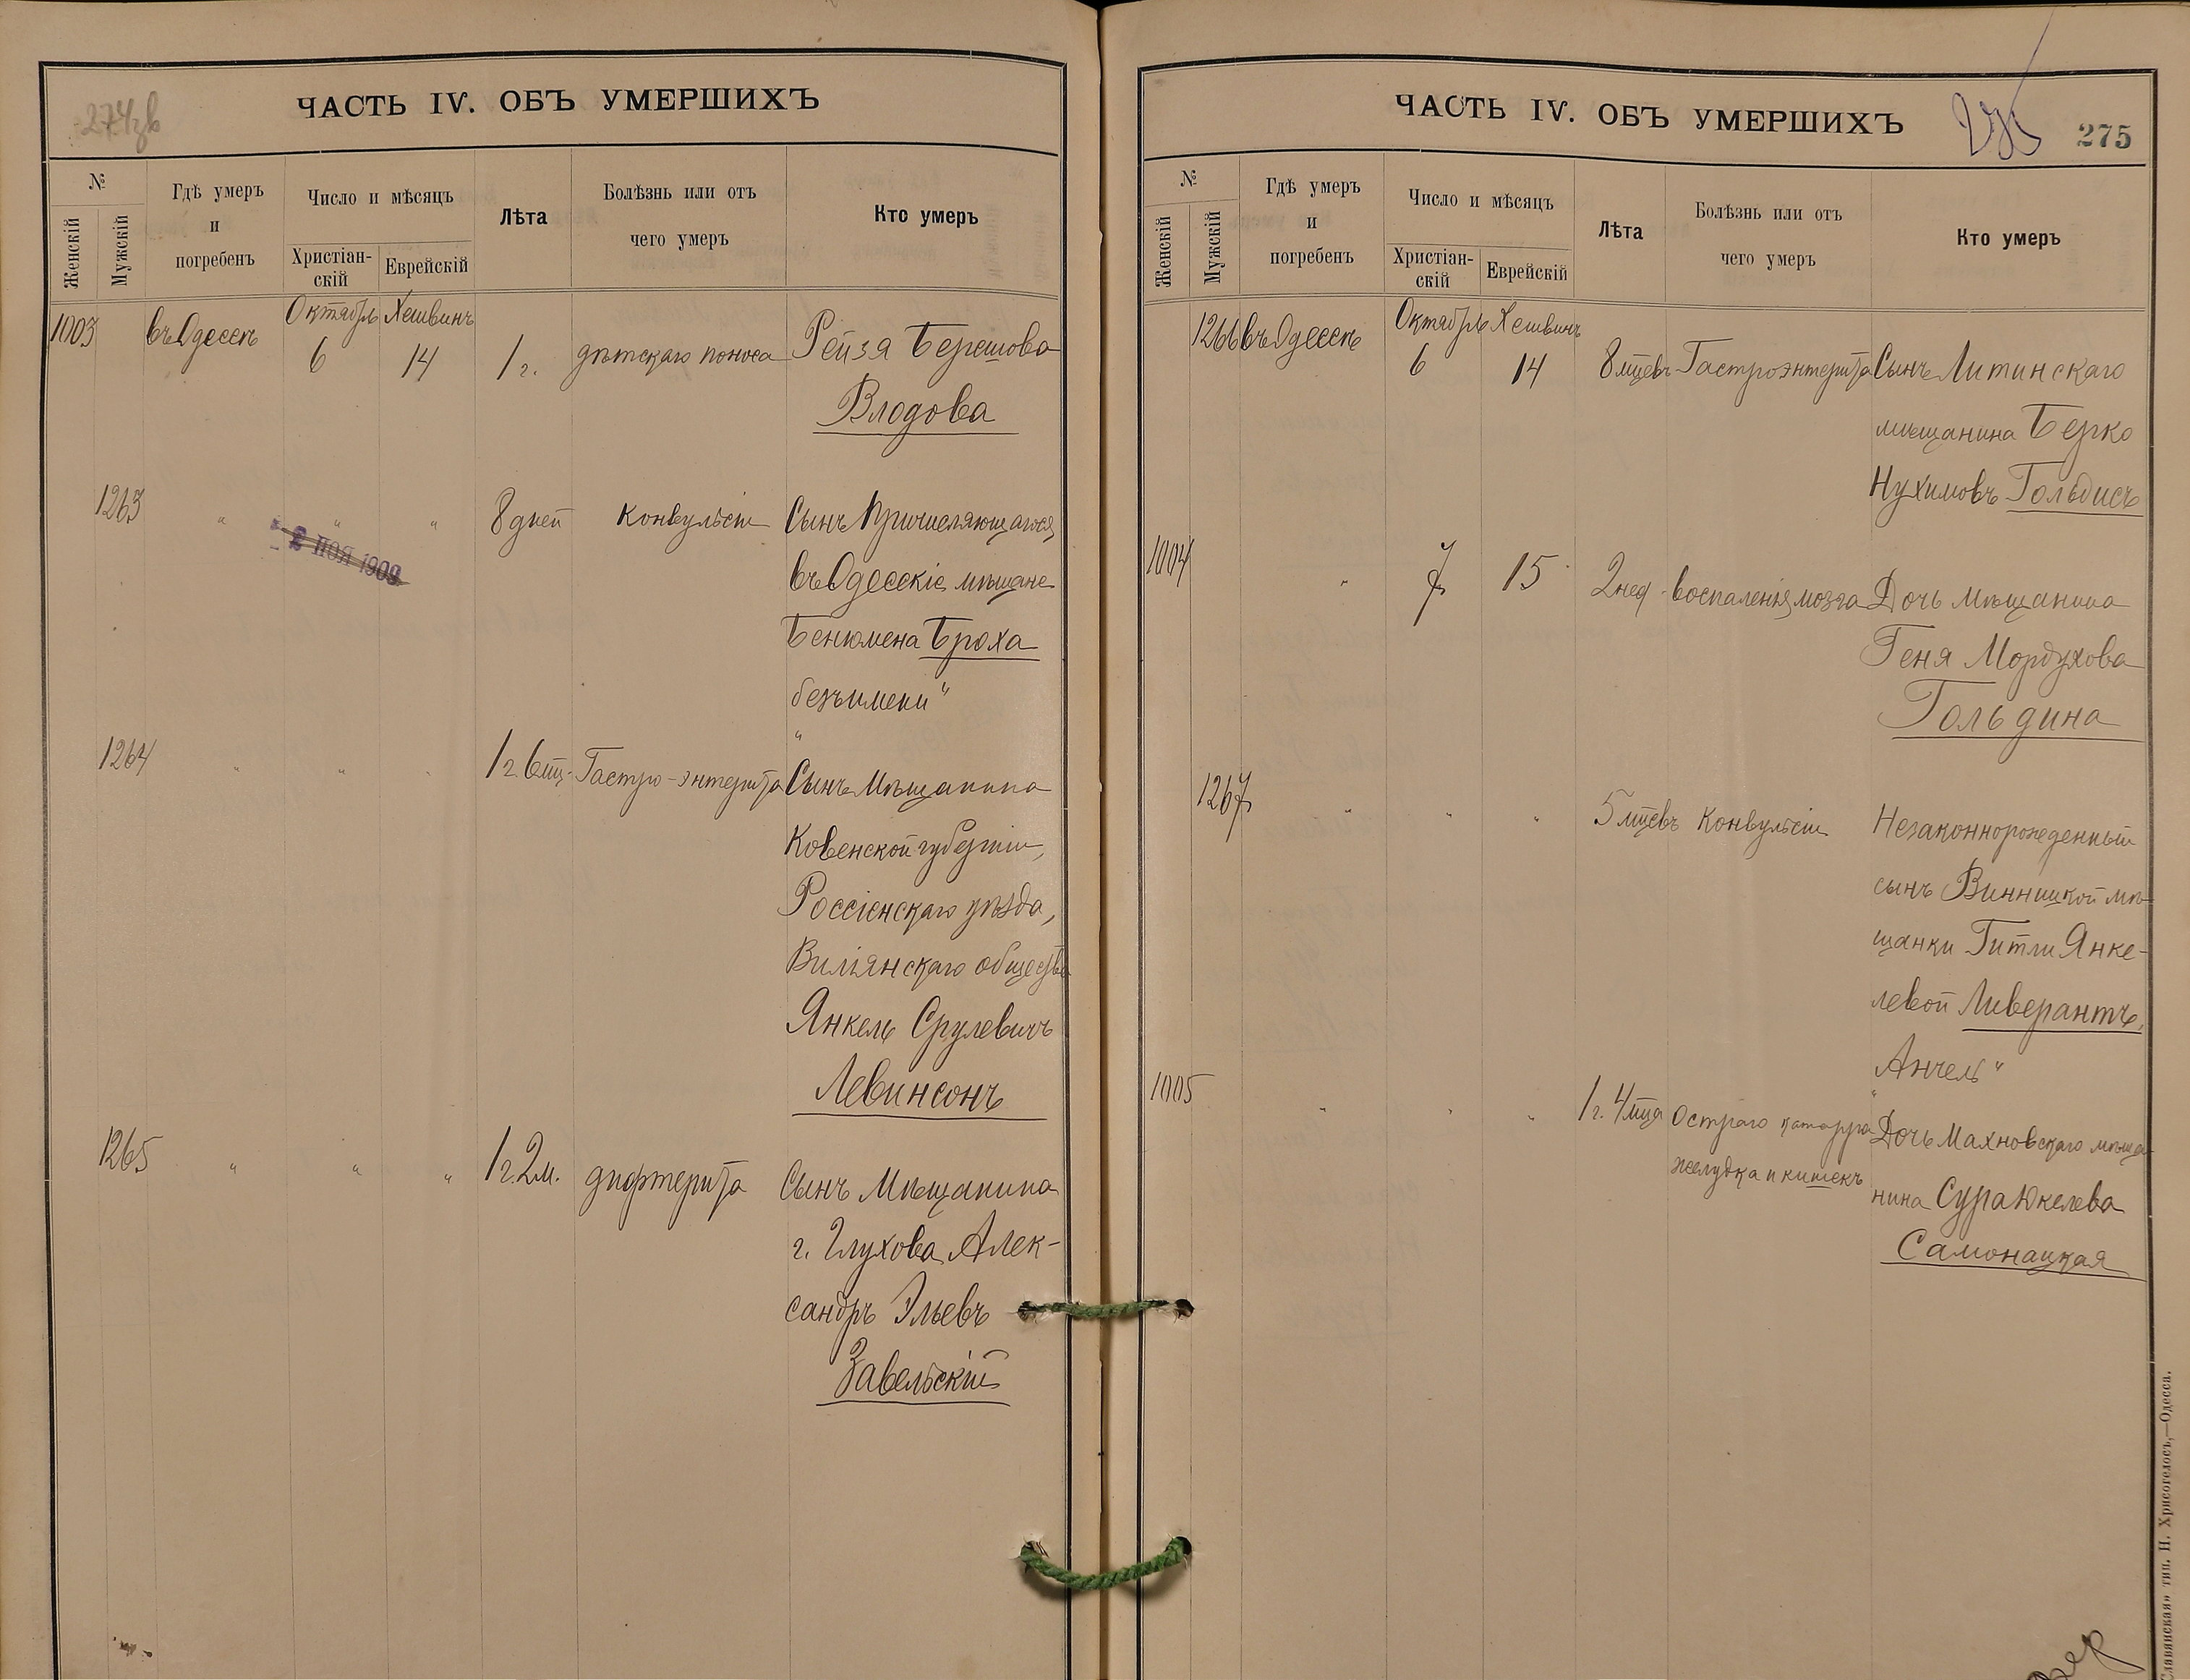 274зв
ЧАСТЬ IV. ОБЪ УМЕРШИХЪ
№
Женскій
Мужскій
Гдѣ умеръ
и
погребенъ
Число и мѣсяцъ
Христіан-
скій
Еврейскій
Лѣта
Болѣзнь или отъ
чего умеръ
Кто умеръ
1003 въ Одессѣ Октябрь 6 Хешвинъ 14 1 г. дѣтскаго поноса Рейзя Берешова
Влодова
1263 " " " 8 дней Конвульсіи Сынъ Причисляющагося
2 НОЯ 1909
въ Одесскіе мѣщане
Бенюмена Броха
безъ имени"
1264 " " " 1 г. 6 мц. Гастро-энтерита Сынъ Мѣщанина
Ковенской губерніи,
Россіенскаго уѣзда,
Виліянскаго общества
Янкель Срулевичъ
Левинсонъ
1265 " " " 1 г. 2 м. дифтерита Сынъ Мѣщанина
г. Глухова Алек-
сандръ Эльевъ
Завельскій
ЧАСТЬ IV. ОБЪ УМЕРШИХЪ
275
275
№
Женскій
Мужскій
Гдѣ умеръ
и
погребенъ
Число и мѣсяцъ
Христіан-
скій
Еврейскій
Лѣта
Болѣзнь или отъ
чего умеръ
Кто умеръ
1266 въ Одессѣ Октябрь 6 Хешвинъ 14 8 мцевъ Гастроэнтерита Сынъ Литинскаго
мѣщанина Берко
Нухимовъ Гольдисъ
1004 " 7 15 2 нед. воспаленія мозга Дочь Мѣщанина
Геня Мордухова
Гольдина
1267 " " " 5 мцевъ Конвульсіи Незаконнорожденный
сынъ Винницкой мѣ-
щанки Гитли Янке-
левой Ливерантъ,
Анчель"
1005 " " " 1 г. 4 мца Остраго катарра Дочь Махновскаго мѣща-
желудка и кишекъ
нина Сура Юкелева
Самонацкая
Славянская» тип. Н. Хрисогелосъ,—Одесса.